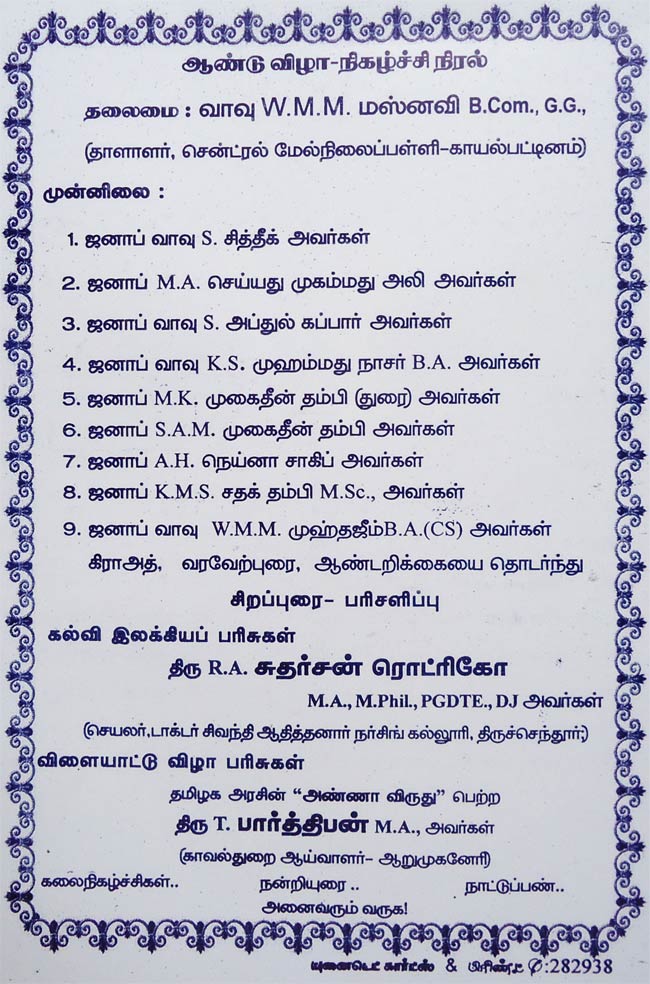 ஆண்டு விழா-நிகழ்ச்சி நிரல்
தலைமை : வாவு W.M.M. மஸ்னவி B.Com., G.G.,
(தாளாளர், சென்ட்ரல் மேல்நிலைப்பள்ளி-காயல்பட்டினம்)
முன்னிலை :
1. ஜனாப் வாவு S. சித்தீக் அவர்கள்
2. ஜனாப் M.A. செய்யது முகம்மது அலி அவர்கள்
3. ஜனாப் வாவு S. அப்துல் கப்பார் அவர்கள்
4. ஜனாப் வாவு K.S. முஹம்மது நாசர் B.A. அவர்கள்
5. ஜனாப் M.K. முகைதீன் தம்பி (துரை) அவர்கள்
6. ஜனாப் S.A.M. முகைதீன் தம்பி அவர்கள்
7. ஜனாப் A.H. நெய்னா சாகிப் அவர்கள்
8. ஜனாப் K.M.S. சதக் தம்பி M.Sc., அவர்கள்
9. ஜனாப் வாவு W.M.M. முஹ்தஜீம்B.A.(CS) அவர்கள்
கிராஅத், வரவேற்புரை, ஆண்டறிக்கையை தொடர்ந்து
சிறப்புரை- பரிசளிப்பு
கல்வி இலக்கியப் பரிசுகள்
திரு R.A. சுதர்சன் ரொட்ரிகோ
M.A., M.Phil., PGDTE., DJ அவர்கள்
(செயலர்,டாக்டர் சிவந்தி ஆதித்தனார் நர்சிங் கல்லூரி, திருச்செந்தூர்;)
விளையாட்டு விழா பரிசுகள்
தமிழக அரசின் “அண்ணா விருது” பெற்ற
திரு T. பார்த்திபன் M.A., அவர்கள்
(காவல்துறை ஆய்வாளர்- ஆறுமுகனேரி)
கலைநிகழ்ச்சிகள்.. நன்றியுரை .. நாட்டுப்பண்..
அனைவரும் வருக!
யுனைடெட் கார்ட்ஸ் & பிரிண்ட் ✆:282938